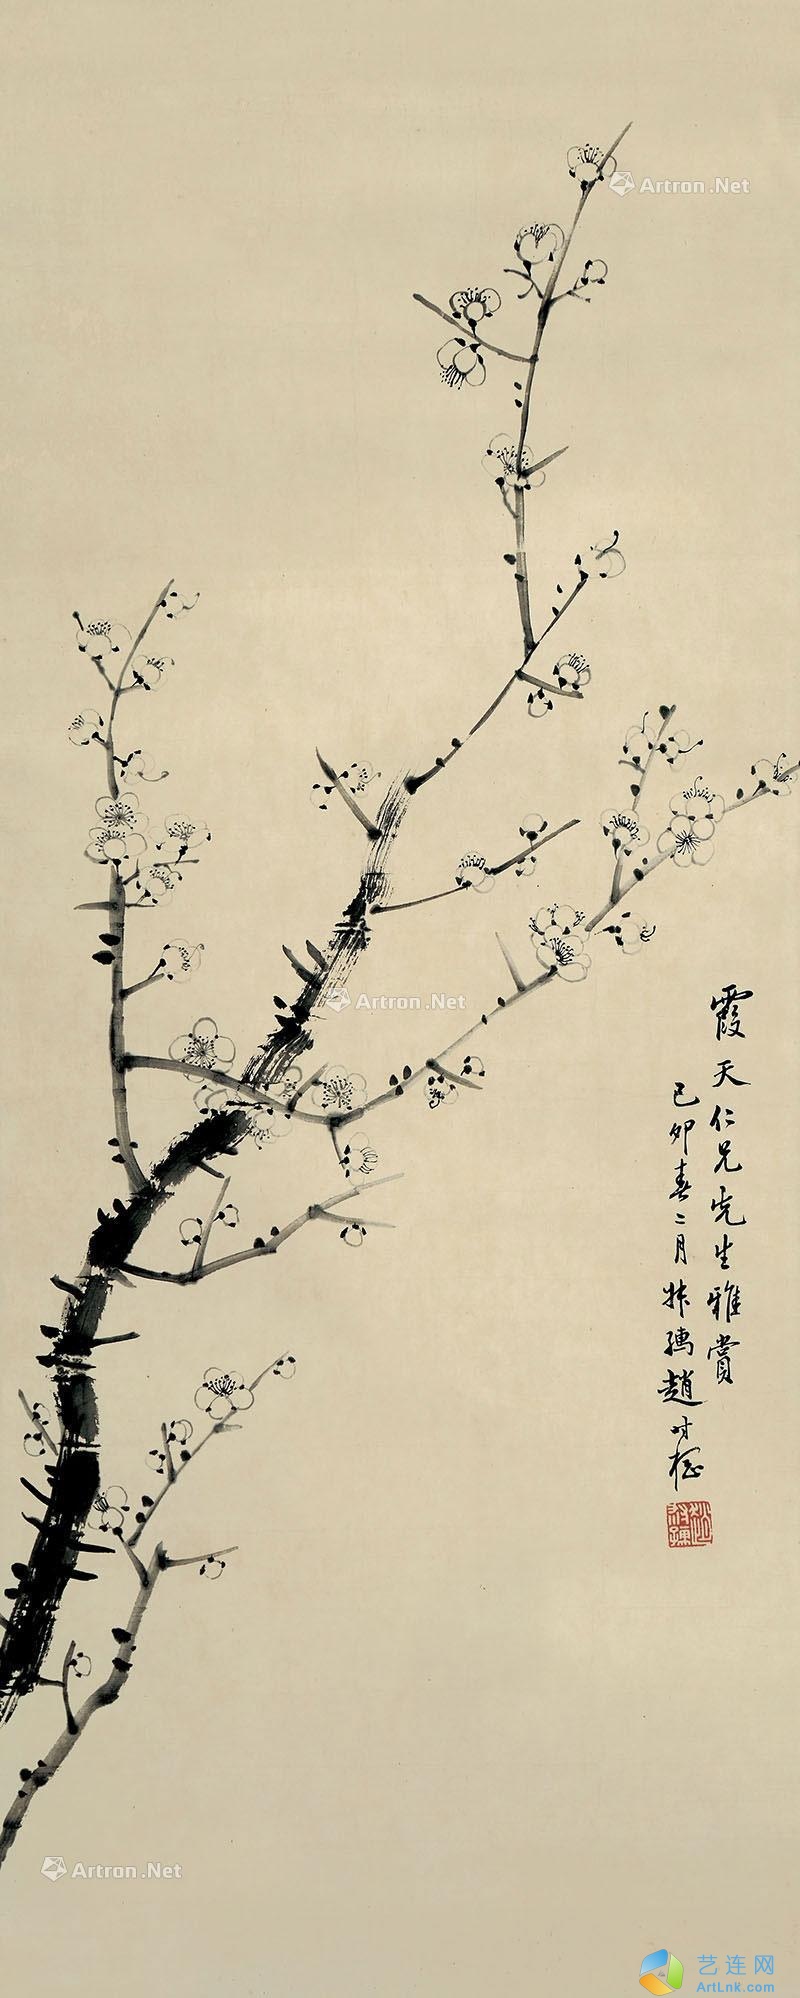 霞天仁兄先生雅赏
己卯春二月叔孺赵时㭎
Artron.Net
Artron.Net
Artron.Net
艺连网
ArtLnk.com